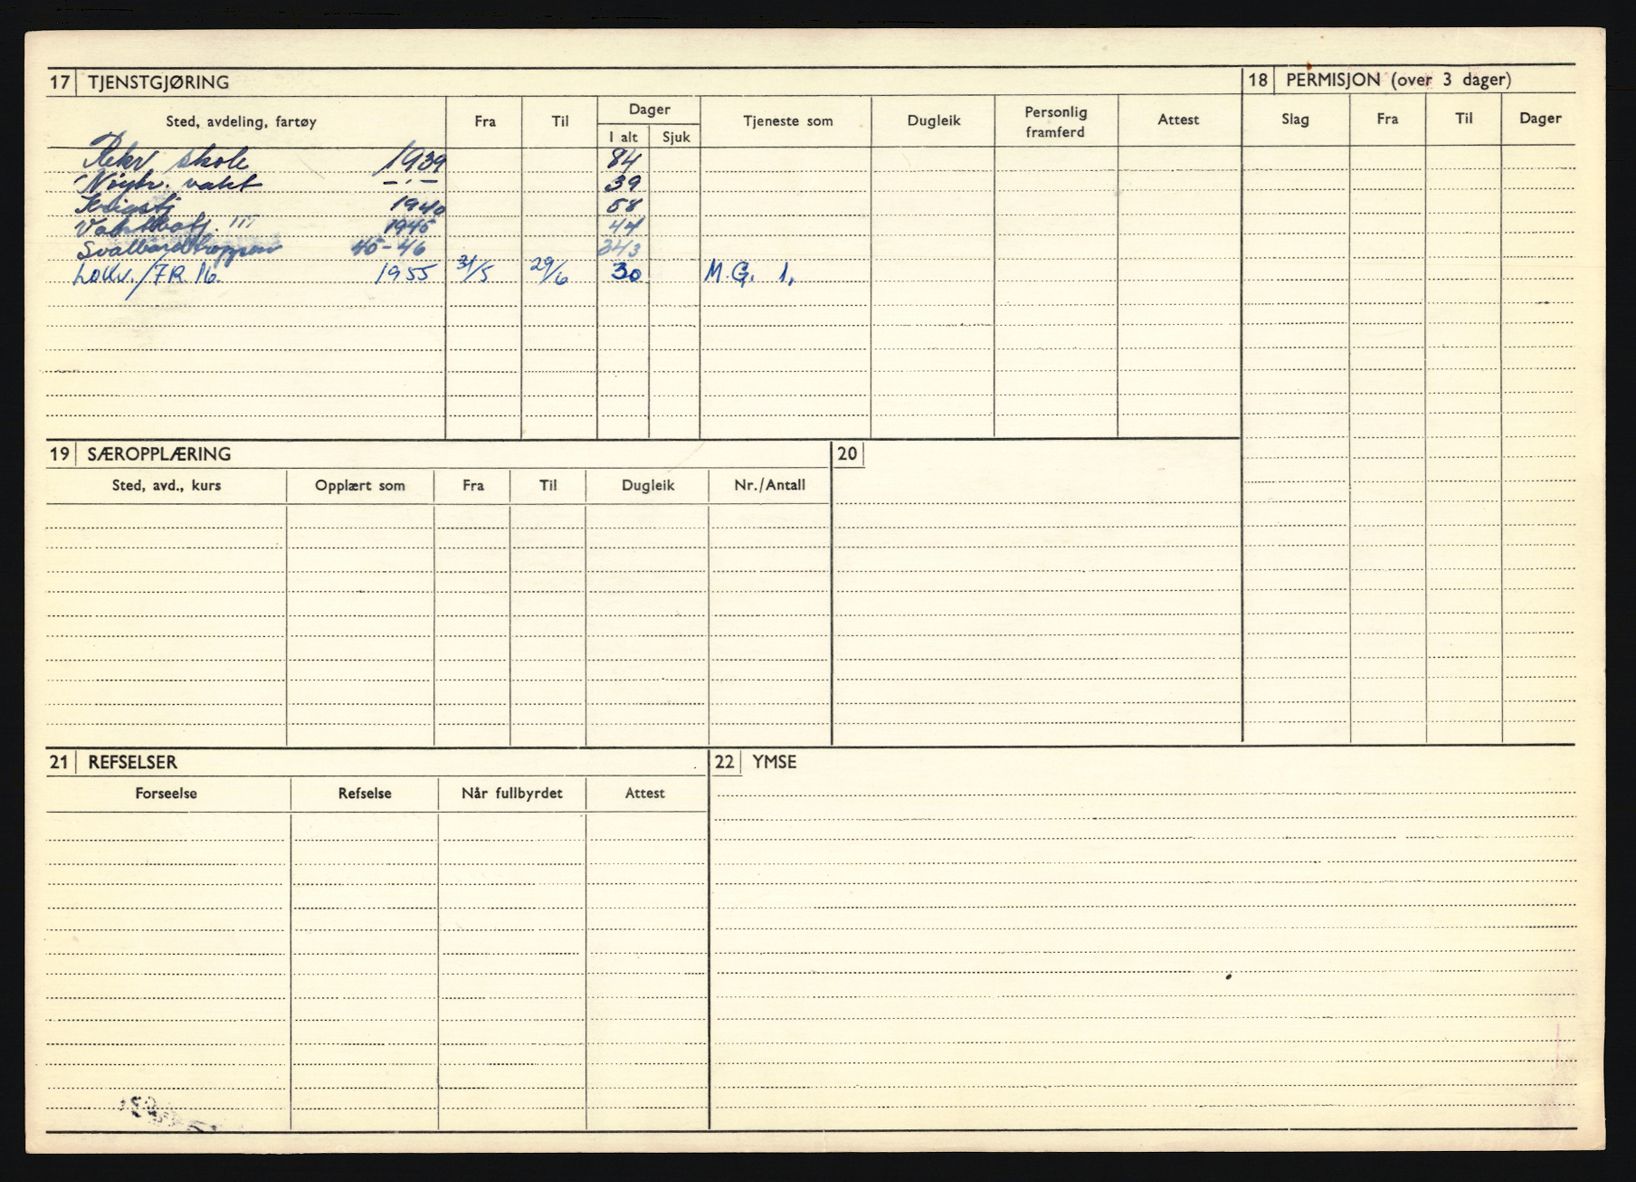 17 TJENSTGJØRING
Sted, avdeling, fartøy Fra Til Dager I alt Sjuk Tjeneste som Dugleik Personlig framferd Attest
Rekr skole 1939 84
Nøytr. vakt –"– 39
Krigstj 1940 58
Vaktbatj. III 1945 44
Svalbardtroppen 45-46 243
Lokv./IR 16. 1955 31/5 29/6 30 M.G. 1.
18 PERMISJON (over 3 dager)
Slag Fra Til Dager
19 SÆROPPLÆRING
Sted, avd., kurs Opplært som Fra Til Dugleik Nr./Antall
20
21 REFSELSER
Forseelse Refselse Når fullbyrdet Attest
22 YMSE